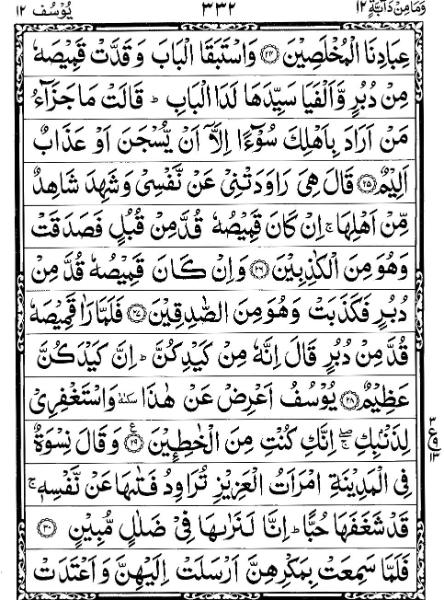 وَمَا مِنْ دَآبَّةٍ ١٢ ٣٣٢ يُوْسُف ١٢
عِبَادِنَا الْمُخْلَصِيْنَ ﴿٢٤﴾ وَاسْتَبَقَا الْبَابَ وَقَدَّتْ قَمِيْصَهٗ
مِنْ دُبُرٍ وَّاَلْفَيَا سَيِّدَهَا لَدَا الْبَابِ ؕ قَالَتْ مَا جَزَآءُ
مَنْ اَرَادَ بِاَهْلِكَ سُوْٓءًا اِلَّاۤ اَنْ يُّسْجَنَ اَوْ عَذَابٌ
اَلِيْمٌ ﴿٢٥﴾ قَالَ هِىَ رَاوَدَتْنِىْ عَنْ نَّفْسِىْ وَشَهِدَ شَاهِدٌ
مِّنْ اَهْلِهَا ۚ اِنْ كَانَ قَمِيْصُهٗ قُدَّ مِنْ قُبُلٍ فَصَدَقَتْ
وَهُوَ مِنَ الْكٰذِبِيْنَ ﴿٢٦﴾ وَاِنْ كَانَ قَمِيْصُهٗ قُدَّ مِنْ
دُبُرٍ فَكَذَبَتْ وَهُوَ مِنَ الصّٰدِقِيْنَ ﴿٢٧﴾ فَلَمَّا رَاٰ قَمِيْصَهٗ
قُدَّ مِنْ دُبُرٍ قَالَ اِنَّهٗ مِنْ كَيْدِكُنَّ ؕ اِنَّ كَيْدَكُنَّ
عَظِيْمٌ ﴿٢٨﴾ يُوْسُفُ اَعْرِضْ عَنْ هٰذَا سكتة وَاسْتَغْفِرِىْ
لِذَنْۢبِكِ ۖۚ اِنَّكِ كُنْتِ مِنَ الْخٰطِـِٕيْنَ ﴿٢٩﴾ ع وَقَالَ نِسْوَةٌ
٣ ع ٩ ١٣
فِى الْمَدِيْنَةِ امْرَاَتُ الْعَزِيْزِ تُرَاوِدُ فَتٰٮهَا عَنْ نَّفْسِهٖ ۚ
قَدْ شَغَفَهَا حُبًّا ؕ اِنَّا لَنَرٰٮهَا فِىْ ضَلٰلٍ مُّبِيْنٍ ﴿٣٠﴾
فَلَمَّا سَمِعَتْ بِمَكْرِهِنَّ اَرْسَلَتْ اِلَيْهِنَّ وَاَعْتَدَتْ